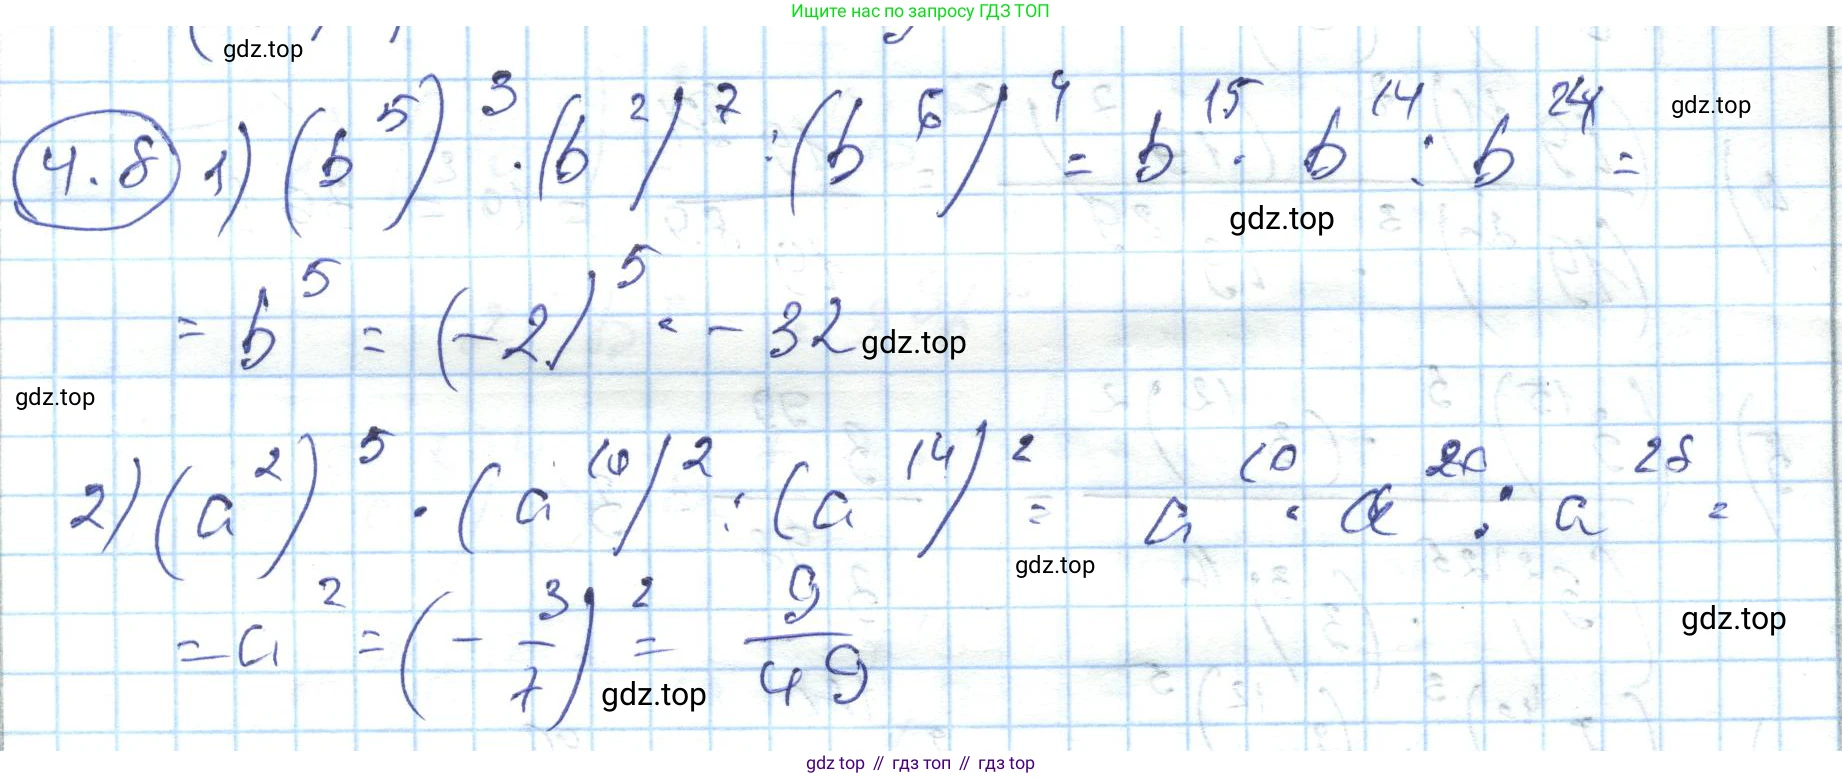 Ищите нас по запросу ГДЗ ТОП
gdz.top
4.8 1) (b⁵)³ · (b²)⁷ : (b⁶)⁴ = b¹⁵ · b¹⁴ : b²⁴ =
gdz.top
gdz.top
= b⁵ = (-2)⁵ = -32
gdz.top
gdz.top
2) (a²)⁵ · (a¹⁰)² : (a¹⁴)² = a¹⁰ · a²⁰ : a²⁸ =
gdz.top
= a² = (-3/7)² = 9/49
gdz.top
gdz.top
gdz top // гдз топ // гдз top